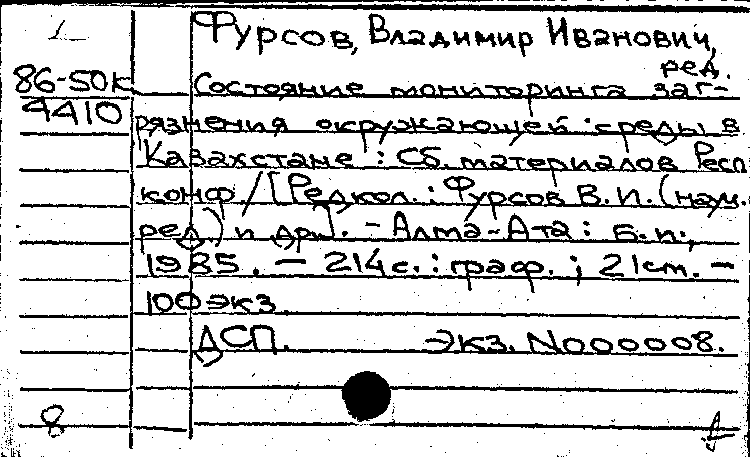 1
Фурсов, Владимир Иванович,
ред.
86-50к
Состояние мониторинга заг-
4410
рязнения окружающей среды в
Казахстане : Сб. материалов Респ
конф. / [Редкол.: Фурсов В. И. (науч.
ред.) и др.]. - Алма-Ата : Б. и.,
1985. - 214 с. : граф. ; 21 cm. -
100 экз.
ДСП. Экз. N000008.
8